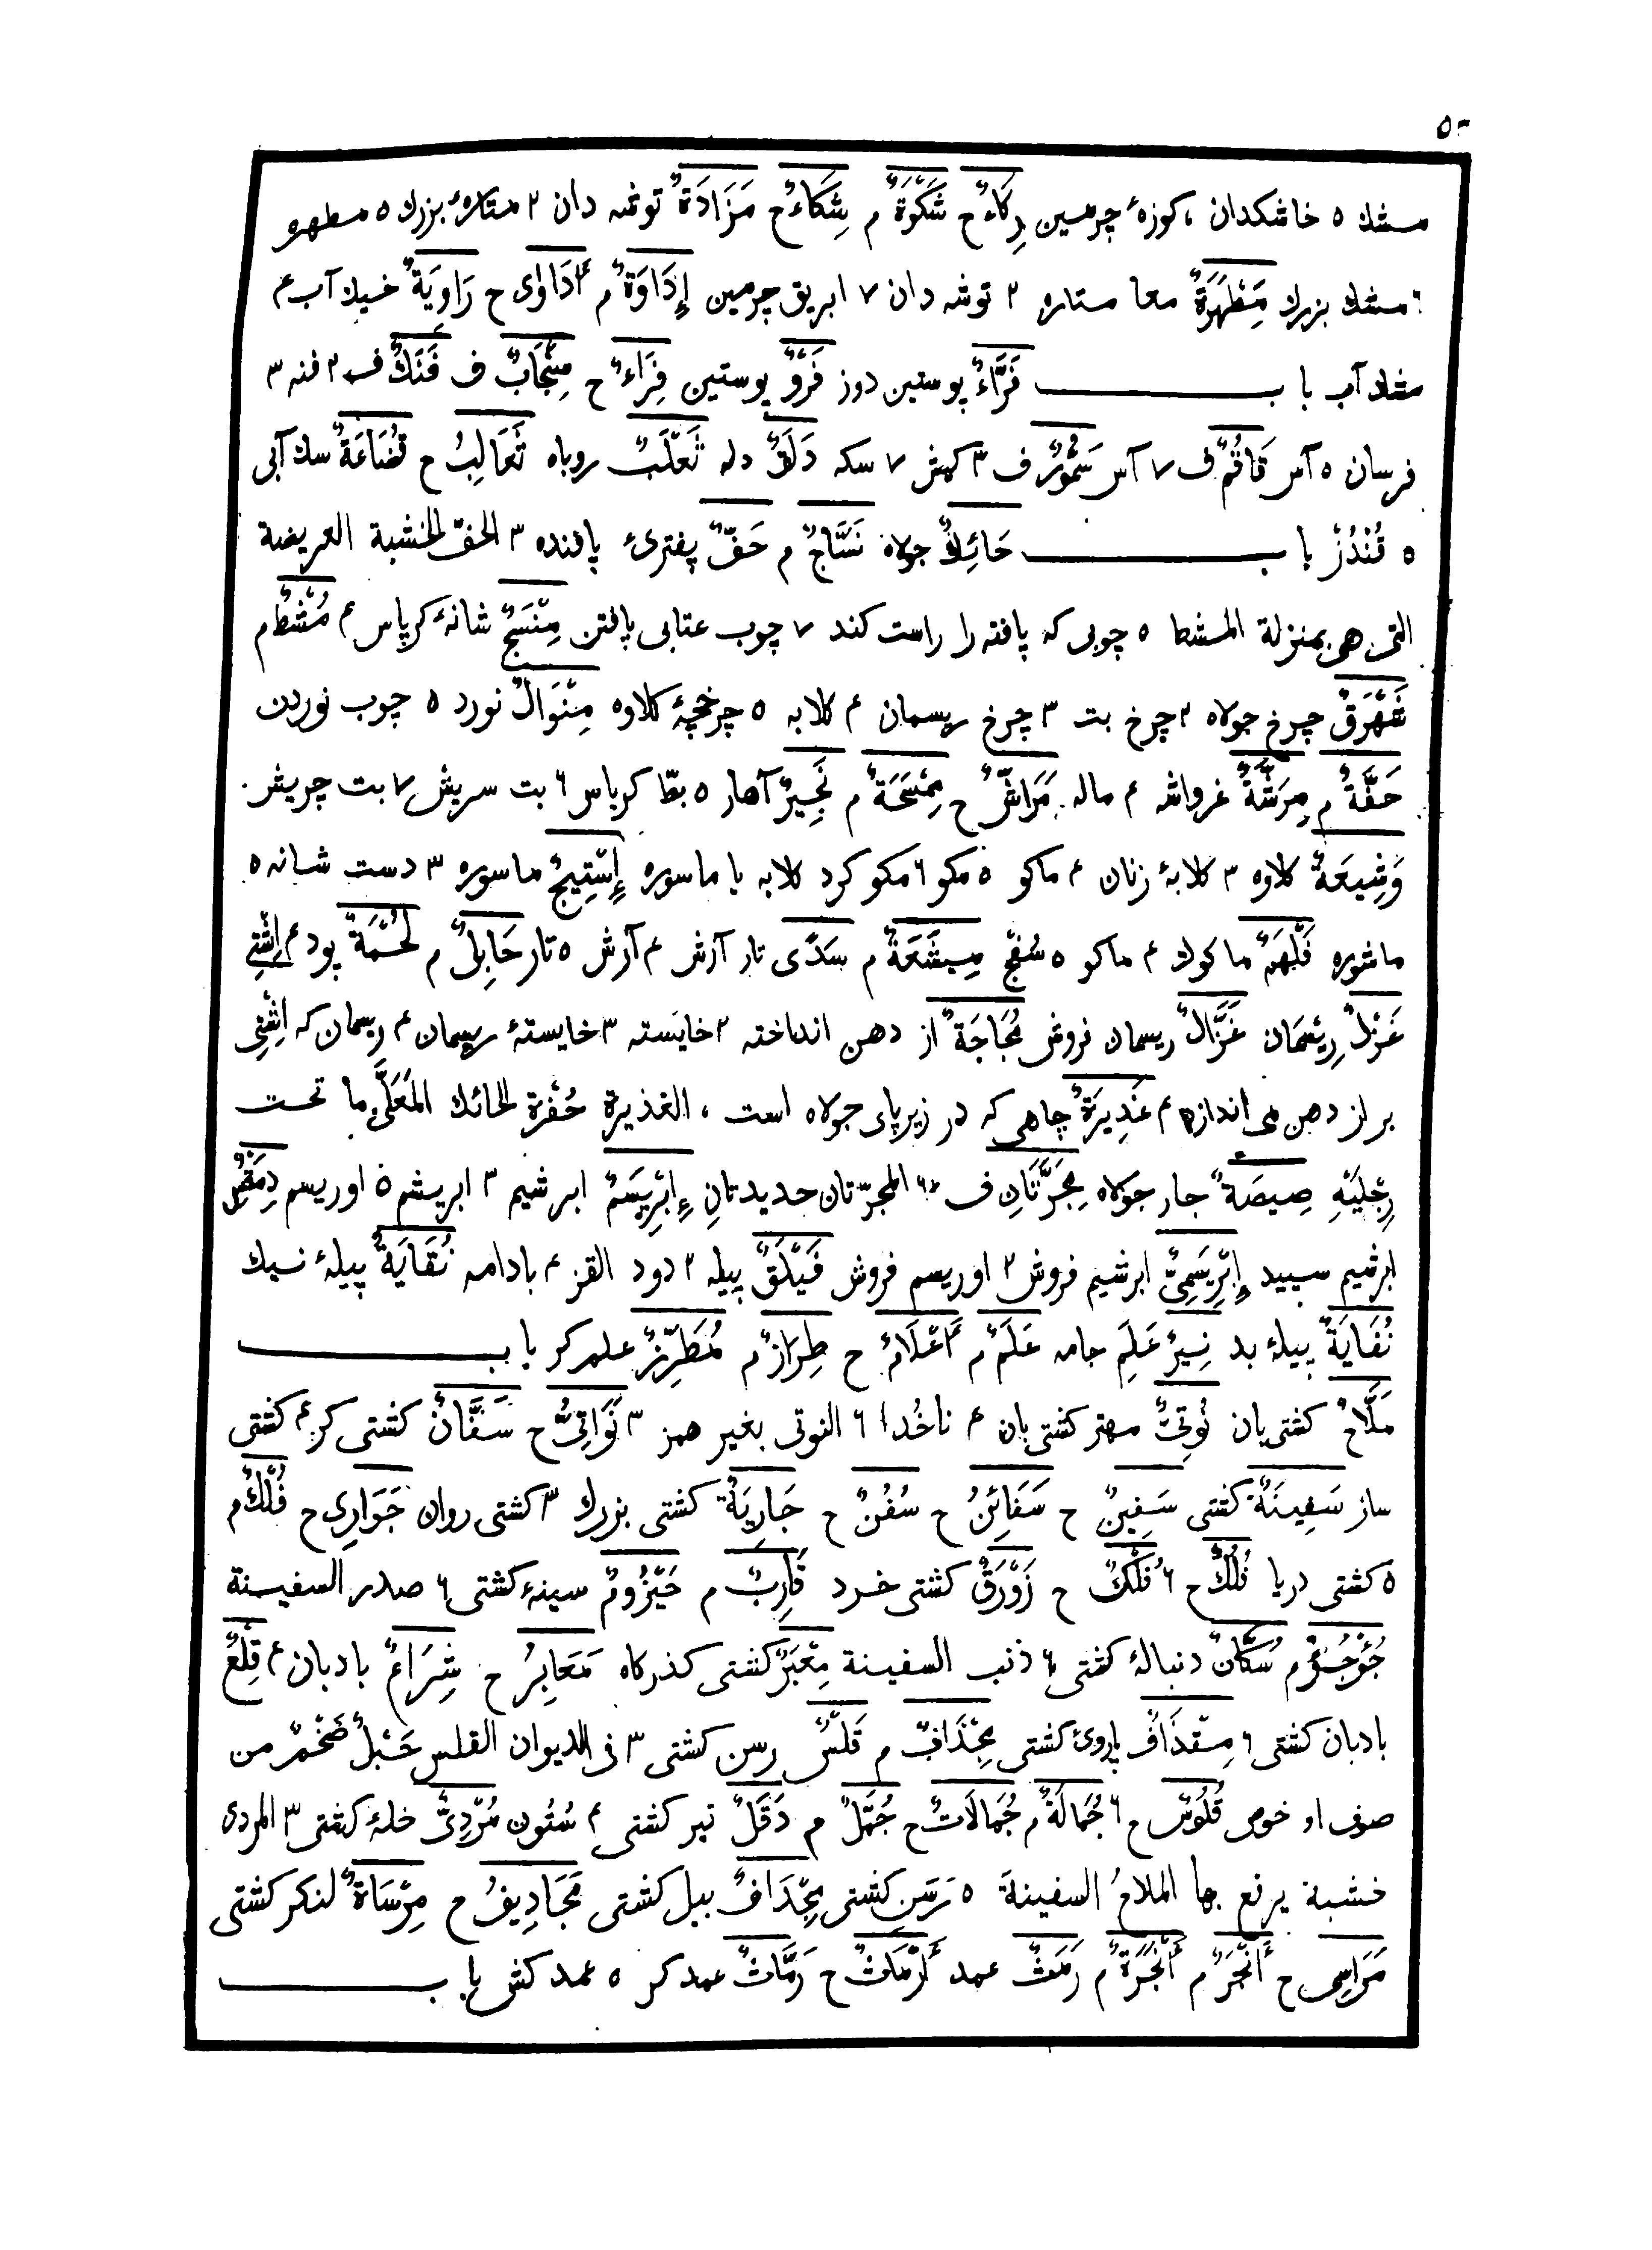 ۵۰
مشك ۵ خاشكدان ، كوزهٔ چرمين رِكَاءٌ ح شَكْوَةٌ م شِكَاءٌ ح مَزَادَةٌ توشه دان ۲ مستارهٔ بزرك ۵ مطهره
۶ مشك بزرك مِطْهَرَةٌ معا مستاره ۲ توشه دان ۷ ابريق چرمين إِدَاوَةٌ م أَدَاوٰى ح رَاوِيَةٌ خيك آب ۴
مشك آب باب فَرَّاءٌ پوستين دوز فَرْوٌ پوستين فِرَاءٌ ح سِنْجَابٌ ف فَنَكٌ ف ۲ فنه ۳
فرسان ۵ آس قَاقُمٌ ف ۷ آس سَمُّورٌ ف ۳ كيش ۷ سكه دَلَقٌ دله ثَعْلَبٌ روباه ثَعَالِبُ ح قُضَاعَةٌ سك آبى
۵ قُنْدُزْ باب حَائِكٌ جولاه نَسَّاجٌ م حَفٌّ پفترىٔ بافنده ۳ الحفّ الخشبة العريضة
التى هى بمنزلة المشط ۵ چوبى كه بافته را راست كند ۷ چوب عتابى بافتن مِنْسَجٌ شانهٔ كرباس ۴ مُشْطٌ م
شَهْرَقٌ چرخ جولاه ۲ چرخ بت ۳ چرخ ريسمان ۴ كلابه ۵ چرخچهٔ كلاوه مِنْوَالٌ نورد ۵ چوب نوردن
حَفَّةٌ م مِرَشَّةٌ غرواشه ۴ ماله مَرَاشُّ ح مِمْسَحَةٌ م نَجِيرٌ آهار ۵ بطّا كرباس ۶ بت سريش ۷ بت چريش
وَشِيعَةٌ كلاوه ۳ كلابهٔ زنان ۴ ماكو ۵ مكو ۶ مكو كرد كلابه با ماسوره إِسْتِيجٌ ماسوره ۳ دست شانه ۵
ماشوره فَلْهَمٌ ماكوك ۴ ماكو ۵ سُفج مِيشَعَةٌ م سَدًى تار آزش ۴ آزش ۵ تار حَابِلٌ م لُحْمَةٌ پود ۴ اِشْتِىِ
غَزْلٌ رِيسْمَان غَزَّالٌ ريسمان فروش مُجَاجَةٌ از دهن انداخته ۲ خايسته ۳ خايستهٔ ريسمان ۴ ريسمان كه اِشْتِىِ
بر از دهن مى اندازه ۴ غَدِيرَةٌ چاهى كه در زير پاى جولاه است ، الغذيرة حُفرة لحائك المُعَلَّى ما تحت
رِجْلَيْهِ صِيصَةٌ جار جولاه مِجَرَّتَانِ ف ۷ ۶ المجرّتان حديدتانِ إِبْرِيسَمٌ ابرشيم ۳ ابريشم ۵ اوريسم دِمَقْسٌ
ابرشيم سپيد إِبْرِيسَمِىٌّ ابرشيم فروش ۲ اوريسم فروش فَيْلَقٌ پيله ۲ دود القز ۴ بادامه نُقَايَةٌ پيلهٔ نيك
نُفَايَةٌ پيلهٔ بد نِيرٌ عَلَمِ جامه عَلَمٌ م أَعْلَامٌ ح طِرَازٌ م مُطَرِّزٌ علمكر باب
مَلَّاحٌ كشتى بان نُوتِىٌّ مهتر كشتى بان ۴ ناخُدا ۶ النوتى بغير همز ۳ نَوَاتِىُّ ح سَفَّانٌ كشتى كر ۴ كشتى
ساز سَفِينَةٌ كشتى سَفِينٌ ح سَفَائِنُ ح سُفُنٌ ح جَارِيَةٌ كشتى بزرك ۳ كشتى روان جَوَارِى ح فُلْكٌ م
۵ كشتى دريا فُلُكٌ ح ۶ فُلْكٌ ح زَوْرَقٌ كشتى خرد قَارِبٌ م حَيْزُومٌ سينهٔ كشتى ۶ صدر السفينة
جُؤْجُؤٌ م سُكَّانٌ دنبالهٔ كشتى ۶ ذنب السفينة مِعْبَرٌ كشتى كذركاه مَعَابِرُ ح شِرَاعٌ بادبان ۴ قِلْعٌ
بادبان كشتى ۶ مِقْذَافٌ پاروىٔ كشتى مِجْذَافٌ م قَلْسٌ رسن كشتى ۳ فى الديوان القلس حَبْلٌ ضَخْمٌ من
صوف او خوص قُلُوسٌ ح ۶ جُمَالَةٌ م جُمَالَاتٌ ح جُمَّلٌ م دَقَلٌ تير كشتى ۴ سُتُون مُرْدِىٌّ خلهٔ كشتى ۳ المردى
خشبة يرفع بها الملاحُ السفينة ۵ رَسَن كشتى مِجْدَافٌ بيل كشتى مَجَادِيفُ ح مِرْسَاةٌ لنكر كشتى
مَرَاسِى ح أَنْجَرٌ م أَنْجَرَةٌ م رَمَثٌ عمد أَرْمَاثٌ ح رَمَّاثٌ عمدكر ۵ عمد كش باب